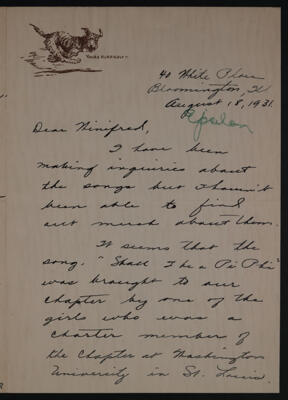 40 White Place
Bloomington, Ill
August 18, 1931.
Epsilon
Dear Winifred,
I have been
making inquiries about
the songs but I haven't
been able to find
out much about them.
It seems that the
song, "Shall I be a Pi Phi"
was brought to our
chapter by one of the
girls who was a
charter member of
the Chapter at Washington
University in St. Louis.